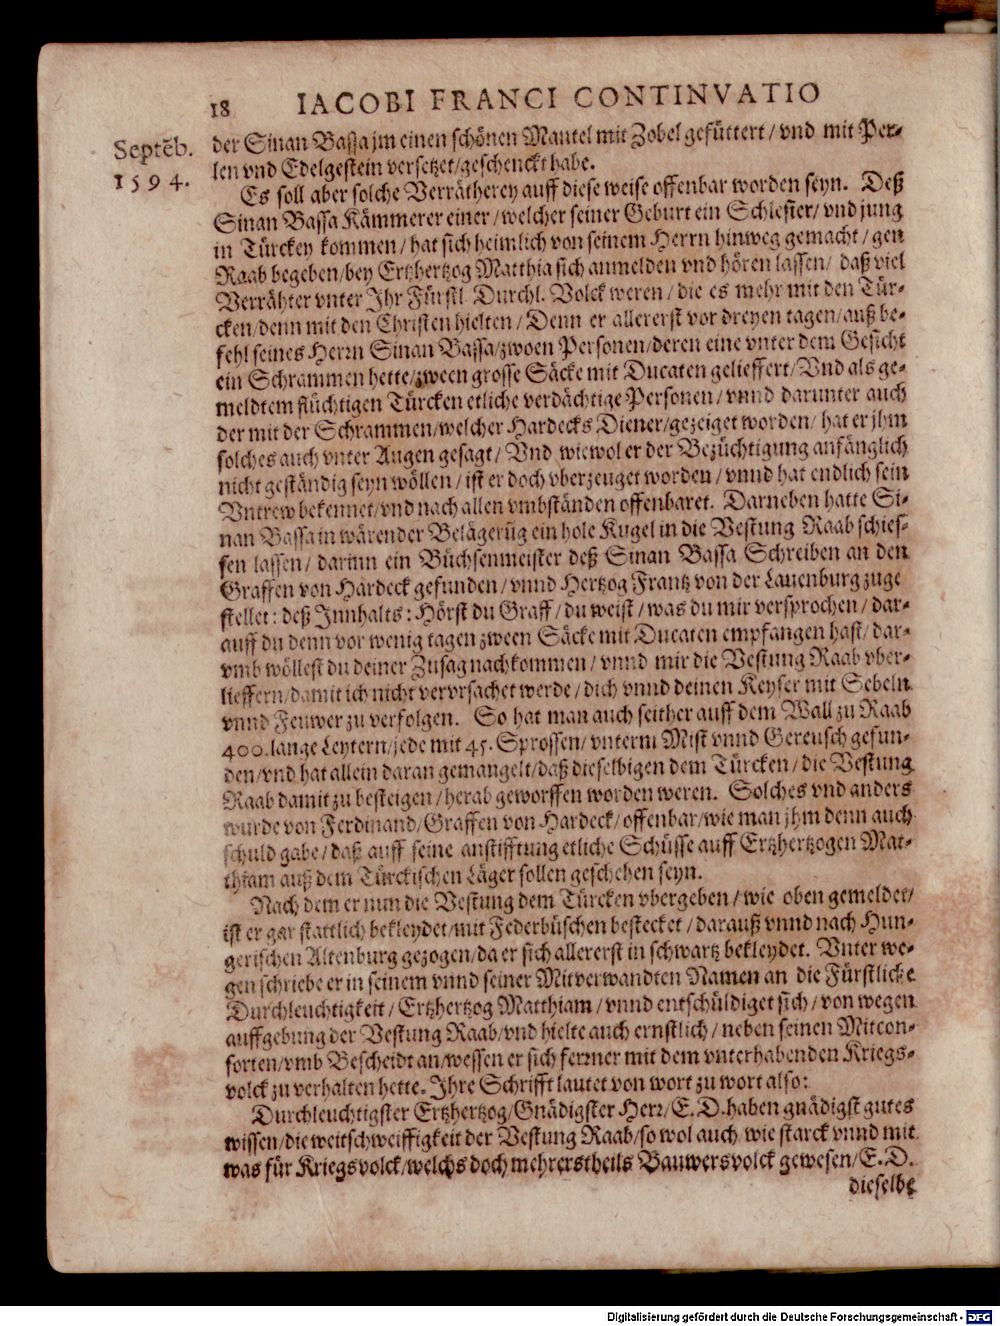 18 IACOBI FRANCI CONTINVATIO
Septẽb.
1594.
der Sinan Bassa jm einen schönen Mantel mit Zobel gefüttert / vnd mit Per-
len vnd Edelgestein versetzet/geschenckt habe.
Es soll aber solche Verrätherey auff diese weise offenbar worden seyn. Deß
Sinan Bassa Kämmerer einer / welcher seiner Geburt ein Schlesier/ vnd jung
in Türckey kommen / hat sich heimlich von seinem Herrn hinweg gemacht / gen
Raab begeben/bey Ertzhertzog Matthia sich anmelden vnd hören lassen/ daß viel
Verrähter vnter Ihr Fürstl. Durchl. Volck weren / die es mehr mit den Tür-
cken/denn mit den Christen hielten / Denn er allererst vor dreyen tagen/auß be-
fehl seines Herrn Sinan Bassa/zwoen Personen/deren eine vnter dem Gesicht
ein Schrammen hette/zween grosse Säcke mit Ducaten gelieffert/ Vnd als ge-
meldtem flüchtigen Türcken etliche verdächtige Personen / vnnd darunter auch
der mit der Schrammen/welcher Hardecks Diener/gezeiget worden/ hat er jhm
solches auch vnter Augen gesagt / Vnd wiewol er der Bezüchtigung anfänglich
nicht geständig seyn wöllen / ist er doch vberzeuget worden / vnnd hat endlich sein
Vntrew bekennet/vnd nach allen vmbständen offenbaret. Darneben hatte Si-
nan Bassa in wärender Belägerũg ein hole Kugel in die Vestung Raab schies-
sen lassen / darinn ein Büchsenmeister deß Sinan Bassa Schreiben an den
Graffen von Hardeck gefunden / vnnd Hertzog Frantz von der Lauenburg zuge
stellet: deß Innhalts: Hörst du Graff / du weist / was du mir versprochen / dar-
auff du denn vor wenig tagen zween Säcke mit Ducaten empfangen hast/ dar-
vmb wöllest du deiner Zusag nachkommen / vnnd mir die Vestung Raab vber-
lieffern/damit ich nicht vervrsachet werde / dich vnnd deinen Keyser mit Sebeln
vnnd Feuwer zu verfolgen. So hat man auch seither auff dem Wall zu Raab
400. lange Leytern/jede mit 45. Sprossen/ vnterm Mist vnnd Gereusch gefun-
den/vnd hat allein daran gemangelt/daß dieselbigen dem Türcken / die Vestung
Raab damit zu besteigen / herab geworffen worden weren. Solches vnd anders
wurde von Ferdinand/Graffen von Hardeck/offenbar/wie man jhm denn auch
schuld gabe / daß auff seine anstifftung etliche Schüsse auff Ertzhertzogen Mat-
thiam auß dem Türckischen Läger sollen geschehen seyn.
Nach dem er nun die Vestung dem Türcken vbergeben / wie oben gemeldet/
ist er gar stattlich bekleydet/mit Federbüschen bestecket / darauß vnnd nach Hun-
gerischen Altenburg gezogen/da er sich allererst in schwartz bekleydet. Vnter we-
gen schriebe er in seinem vnnd seiner Mitverwandten Namen an die Fürstliche
Durchleuchtigkeit / Ertzhertzog Matthiam / vnnd entschüldiget sich / von wegen
auffgebung der Vestung Raab/vnd hielte auch ernstlich / neben seinen Mitcon-
sorten/vmb Bescheidt an/wessen er sich ferrner mit dem vnterhabenden Kriegs-
volck zu verhalten hette. Ihre Schrifft lautet von wort zu wort also:
Durchleuchtigster Ertzhertzog/Gnädigster Herr/E. D. haben gnädigst gutes
wissen/die weitschweiffigkeit der Vestung Raab/so wol auch wie starck vnnd mit
was für Kriegsvolck/welchs doch mehrerstheils Bauwersvolck gewesen/E. D.
dieselbe
Digitalisierung gefördert durch die Deutsche Forschungsgemeinschaft - DFG